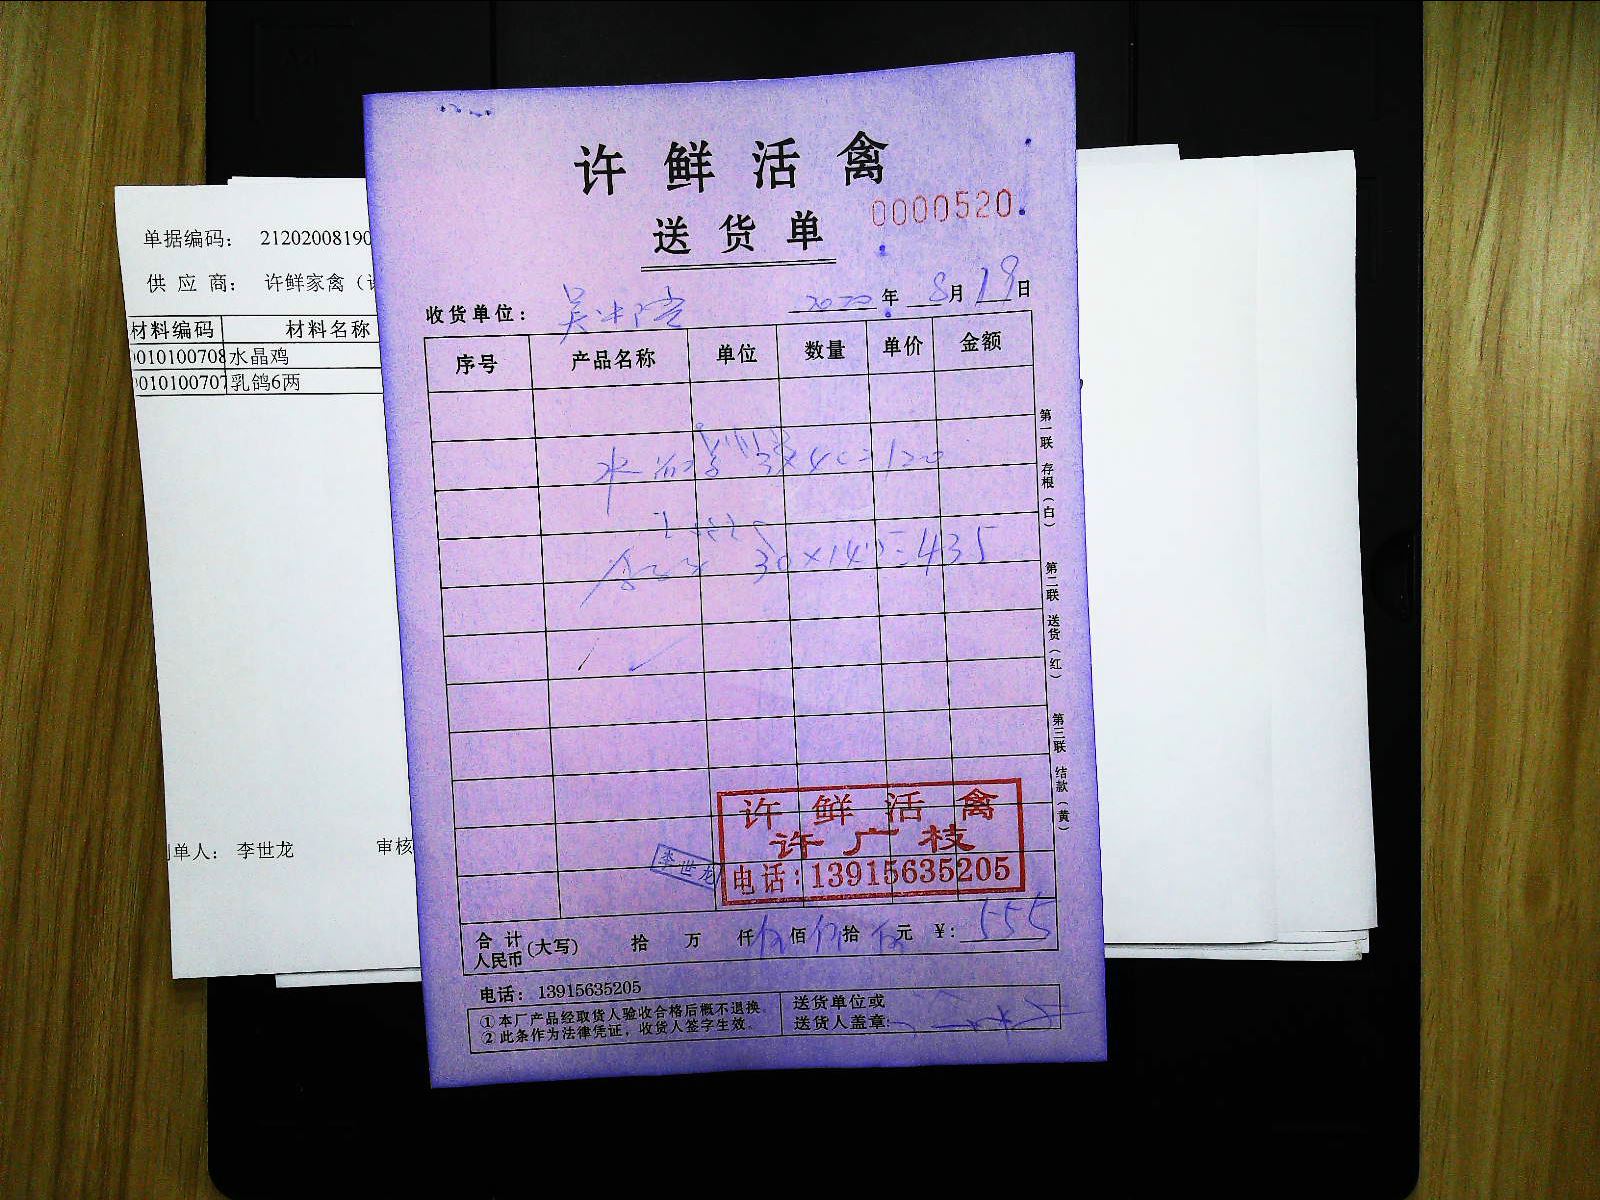 许鲜活禽
0000520
送货单
收货单位：
2020年 8月 19日
序号 产品名称 单位 数量 单价 金额
3×40=120
30×14.5=435
第一联 存根（白）
第二联 送货（红）
第三联 结款（黄）
许鲜活禽
许广枝
电话：13915635205
李世龙
合计人民币（大写） 拾 万 仟 伍 佰 伍 拾 伍 元 ￥：555
电话：13915635205
①本厂产品经取货人验收合格后概不退换
②此条作为法律凭证，收货人签字生效.
送货单位或
送货人盖章：
单据编码： 2120200819
供应商： 许鲜家禽（
材料编码 材料名称
010100708 水晶鸡
010100707 乳鸽6两
单人： 李世龙 审核